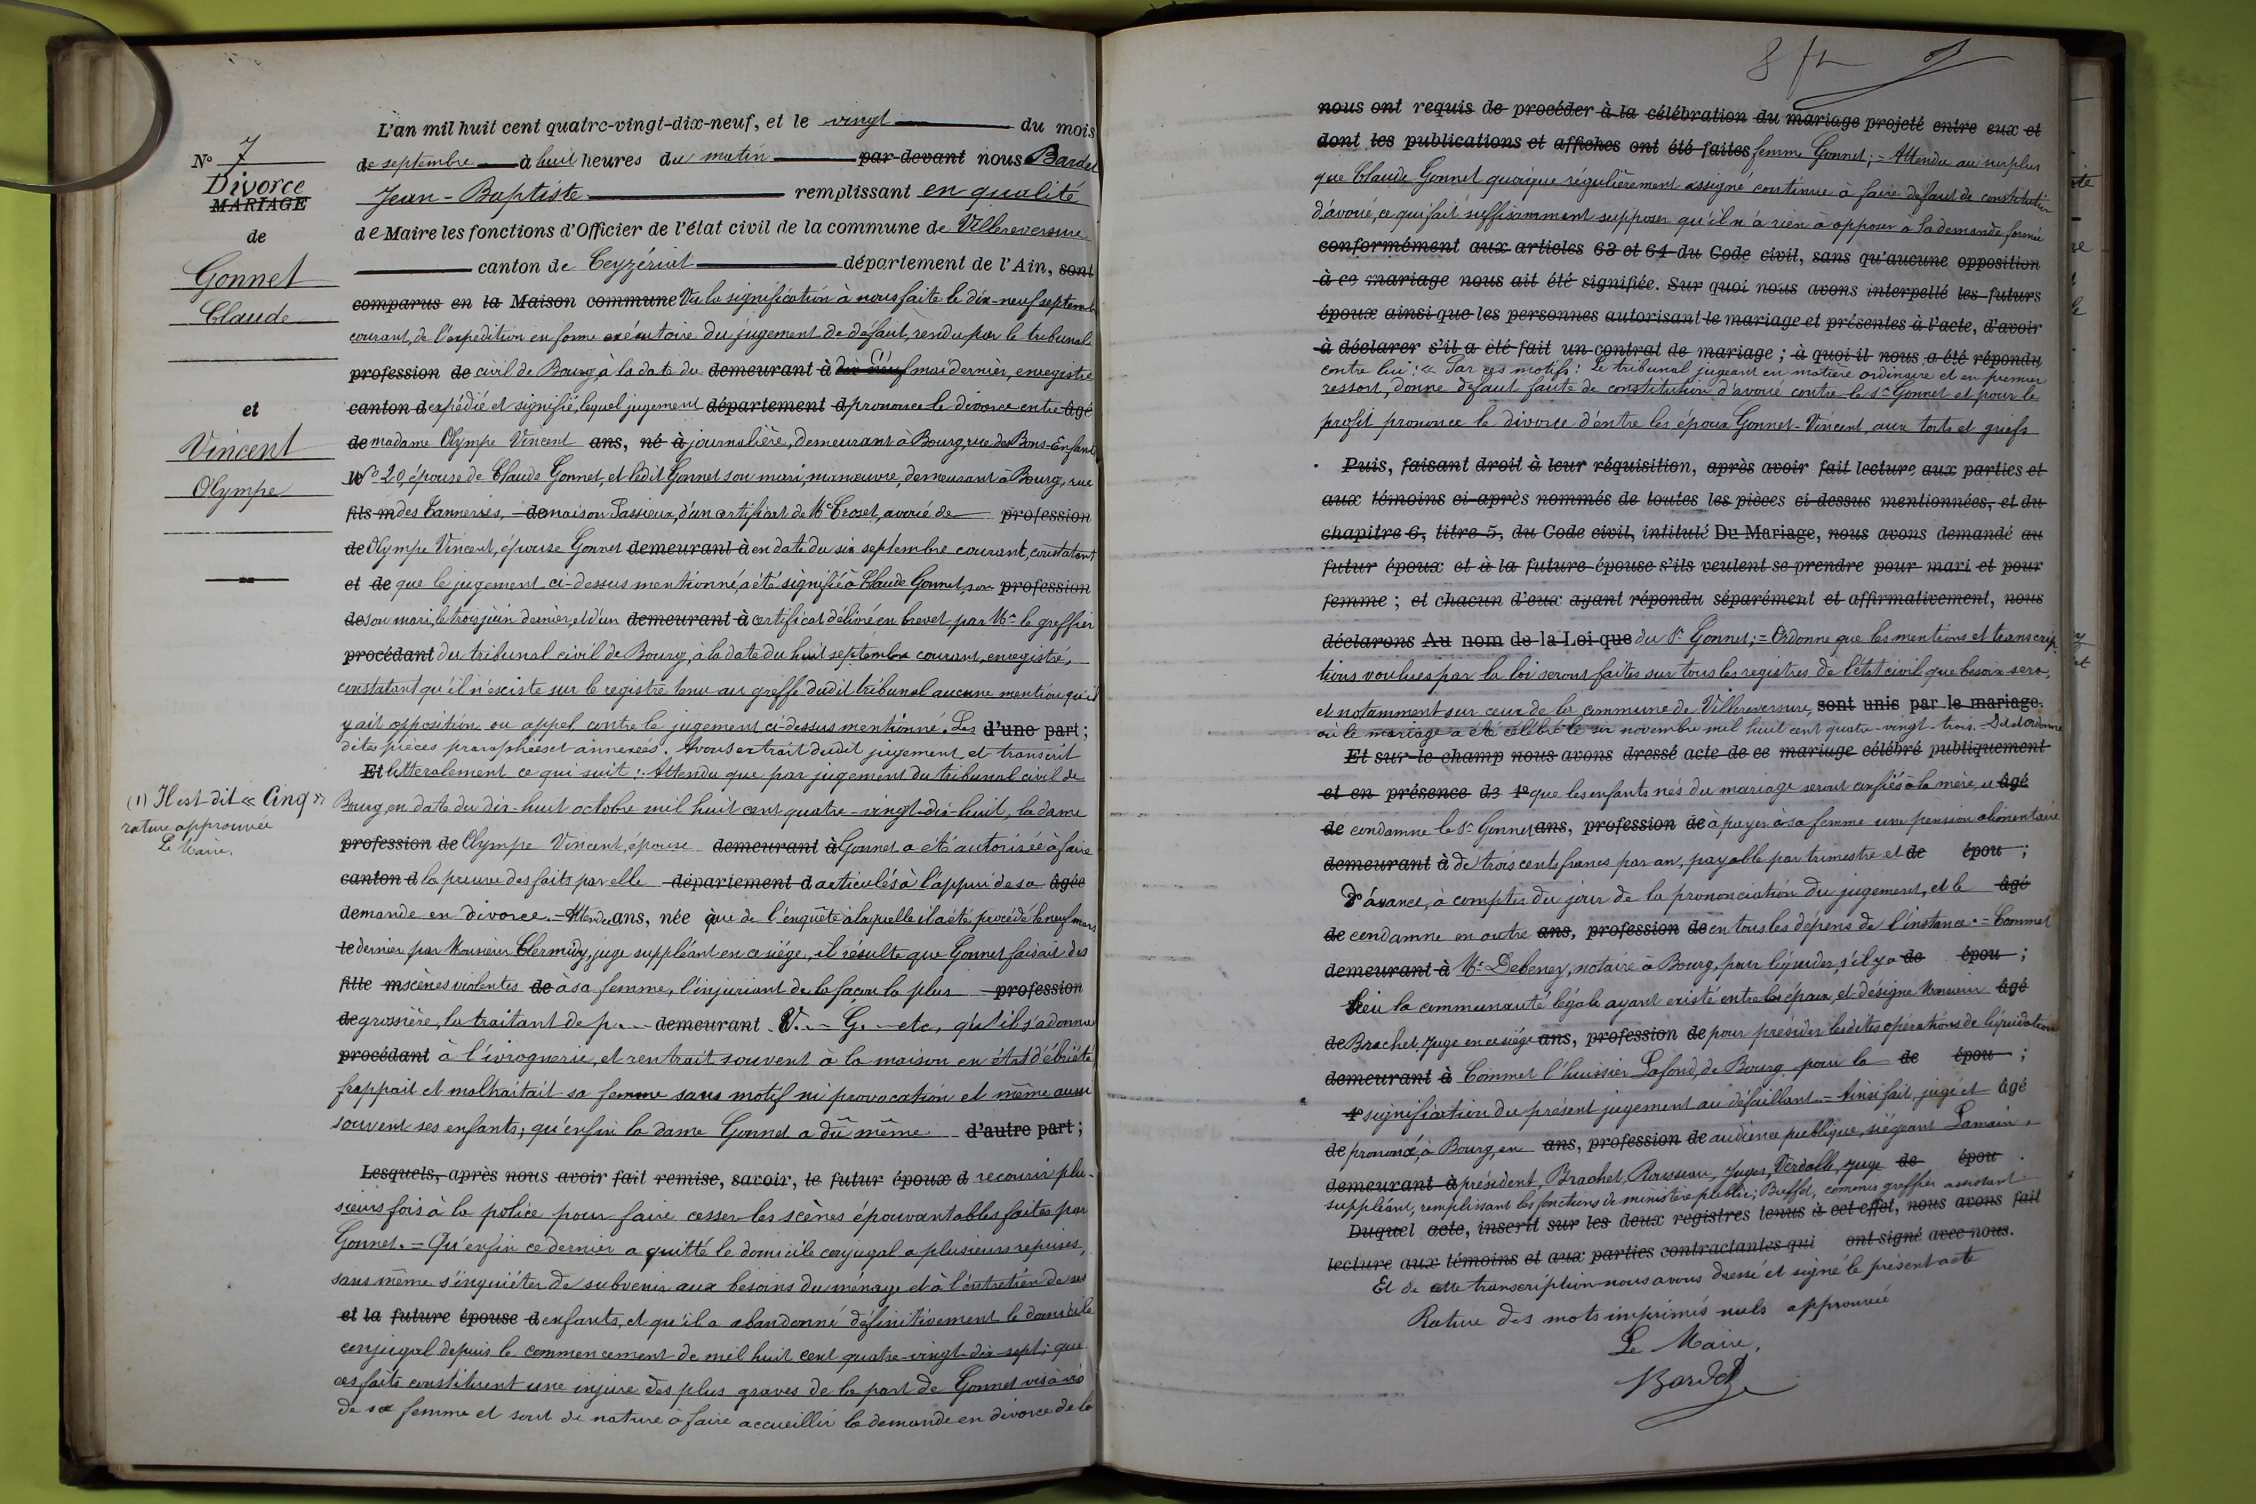 N° 7
Divorce
MARIAGE
de
Gonnet
Claude
et
Vincent
Olympe
(1) Il est dit « Cinq »
rature approuvée
Le Maire.
L'an mil huit cent quatre-vingt-dix-neuf, et le vingt du mois
de septembre à huit heures du matin par-devant nous Bardet
Jean-Baptiste remplissant en qualité
de Maire les fonctions d'Officier de l'état civil de la commune de Villereversure
canton de Ceyzériat département de l'Ain, sont
comparus en la Maison commune Vu la signification à nous faite le dix-neuf septembre
courant, de l'expédition en forme exécutoire du jugement de défaut, rendu par le tribunal
profession de civil de Bourg, à la date du demeurant à dix neuf mai dernier, enregistré
canton d expédié et signifié, lequel jugement département d prononce le divorce entre âgé
de madame Olympe Vincent ans, né à journalière, demeurant à Bourg, rue des Bons-Enfants
N° 20, épouse de Claude Gonnet, et ledit Gonnet son mari, manœuvre, demeurant à Bourg, rue
fils m des Tanneries, de maison Passieux, d'un certificat de Me Croset, avoué de profession
de Olympe Vincent, épouse Gonnet demeurant à en date du six septembre courant, constatant
et de que le jugement ci-dessus mentionné, a été signifié à Claude Gonnet, profession
de son mari, le trois juin dernier, et d'un demeurant à certificat délivré en brevet, par Mr le greffier
procédant du tribunal civil de Bourg, à la date du huit septembre courant, enregistré,
constatant qu'il n'existe sur le registre tenu au greffe dudit tribunal aucune mention qu'il
y ait opposition ou appel contre le jugement ci-dessus mentionné. Les d'une part;
dites pièces paraphées et annexées. Avons extrait dudit jugement et transcrit
Et littéralement ce qui suit: Attendu que par jugement du tribunal civil de
Bourg, en date du dix-huit octobre mil huit cent quatre-vingt-dix-huit, la dame
profession de Olympe Vincent, épouse demeurant à Gonnet a été autorisée à faire
canton d la preuve des faits par elle département d articulés à l'appui de sa âgée
demande en divorce. = Attendu ans, née à que de l'enquête à laquelle il a été procédé le neuf mars
le dernier par Monsieur Clermidy, juge suppléant en ce siége, il résulte que Gonnet faisait des
fille m scènes violentes de à sa femme, l'injuriant de la façon la plus profession
de grossière, la traitant de p... demeurant V... G... etc, qu'il s'adonnait
procédant à l'ivrognerie, et rentrait souvent à la maison en état d'ébriété,
frappait et maltraitait sa femme sans motif ni provocation et même aussi
souvent ses enfants; qu'enfin la dame Gonnet a dû même d'autre part;
Lesquels, après nous avoir fait remise, savoir, le futur époux d recourir plu-
sieurs fois à la police pour faire cesser les scènes épouvantables faites par
Gonnet. = Qu'enfin ce dernier a quitté le domicile conjugal a plusieurs reprises,
sans même s'inquiéter de subvenir aux besoins du ménage et à l'entretien de ses
et la future épouse d enfants, et qu'il a abandonné définitivement le domicile
conjugal depuis le commencement de mil huit cent quatre-vingt-dix-sept; que
ces faits constituent une injure des plus graves de la part de Gonnet vis à vis
de sa femme et sont de nature à faire accueillir la demande en divorce de la
8
nous ont requis de procéder à la célébration du mariage projeté entre eux et
dont les publications et affiches ont été faites femme Gonnet; = Attendu au surplus
que Claude Gonnet quoique régulièrement assigné continue à faire défaut de constitution
d'avoué, ce qui fait suffisamment supposer qu'il n'a rien à opposer à la demande formée
conformément aux articles 63 et 64 du Code civil, sans qu'aucune opposition
à ce mariage nous ait été signifiée. Sur quoi nous avons interpellé les futurs
époux ainsi que les personnes autorisant le mariage et présentes à l'acte, d'avoir
à déclarer s'il a été fait un contrat de mariage; à quoi il nous a été répondu
contre lui: « Par ces motifs: Le tribunal jugeant en matière ordinaire et en premier
ressort, donne défaut faute de constitution d'avoué contre le sr Gonnet et pour le
profit prononce le divorce d'entre les époux Gonnet-Vincent, aux torts et griefs
Puis, faisant droit à leur réquisition, après avoir fait lecture aux parties et
aux témoins ci-après nommés de toutes les pièces ci-dessus mentionnées, et du
chapitre 6, titre 5, du Code civil, intitulé Du Mariage, nous avons demandé au
futur époux et à la future épouse s'ils veulent se prendre pour mari et pour
femme; et chacun d'eux ayant répondu séparément et affirmativement, nous
déclarons Au nom de la Loi que du sr Gonnet; = Ordonne que les mentions et transcrip-
tions voulues par la loi seront faites sur tous les registres de l'état civil que besoin sera,
et notamment sur ceux de la commune de Villereversure, sont unis par le mariage.
où le mariage a été célébré le six novembre mil huit cent quatre-vingt-trois. = Dit et ordonne
Et sur-le-champ nous avons dressé acte de ce mariage célébré publiquement
et en présence de 1° que les enfants nés du mariage seront confiés à la mère, et âgé
de condamne le sr Gonnet ans, profession de à payer à sa femme une pension alimentaire
demeurant à de trois cents francs par an, payable par trimestre et de épou ;
d'avance, à compter du jour de la prononciation du jugement, et le âgé
de condamne en outre ans, profession de en tous les dépens de l'instance. = Commet
demeurant à Me Debeney, notaire à Bourg, pour liquider, s'il y a de épou ;
lieu la communauté légale ayant existé entre les époux, et désigne Monsieur âgé
de Brachet, Juge en ce siége ans, profession de pour présider les dites opérations de liquidation
demeurant à Commet l'huissier Lafond, de Bourg pour la de épou ;
4° signification du présent jugement au défaillant. = Ainsi fait, jugé et âgé
de prononcé, à Bourg, en ans, profession de audience publique, siégeant Lamain,
demeurant à président, Brachet, Rousseau, Juges, Verdalle, juge de épou .
suppléant, remplissant les fonctions de ministère public; Buffet, commis greffier assistant
Duquel acte, inscrit sur les deux registres tenus à cet effet, nous avons fait
lecture aux témoins et aux parties contractantes qui ont signé avec nous.
Et de cette transcription nous avons dressé et signé le présent acte
Rature des mots imprimés nuls approuvée
Le Maire,
Bardet